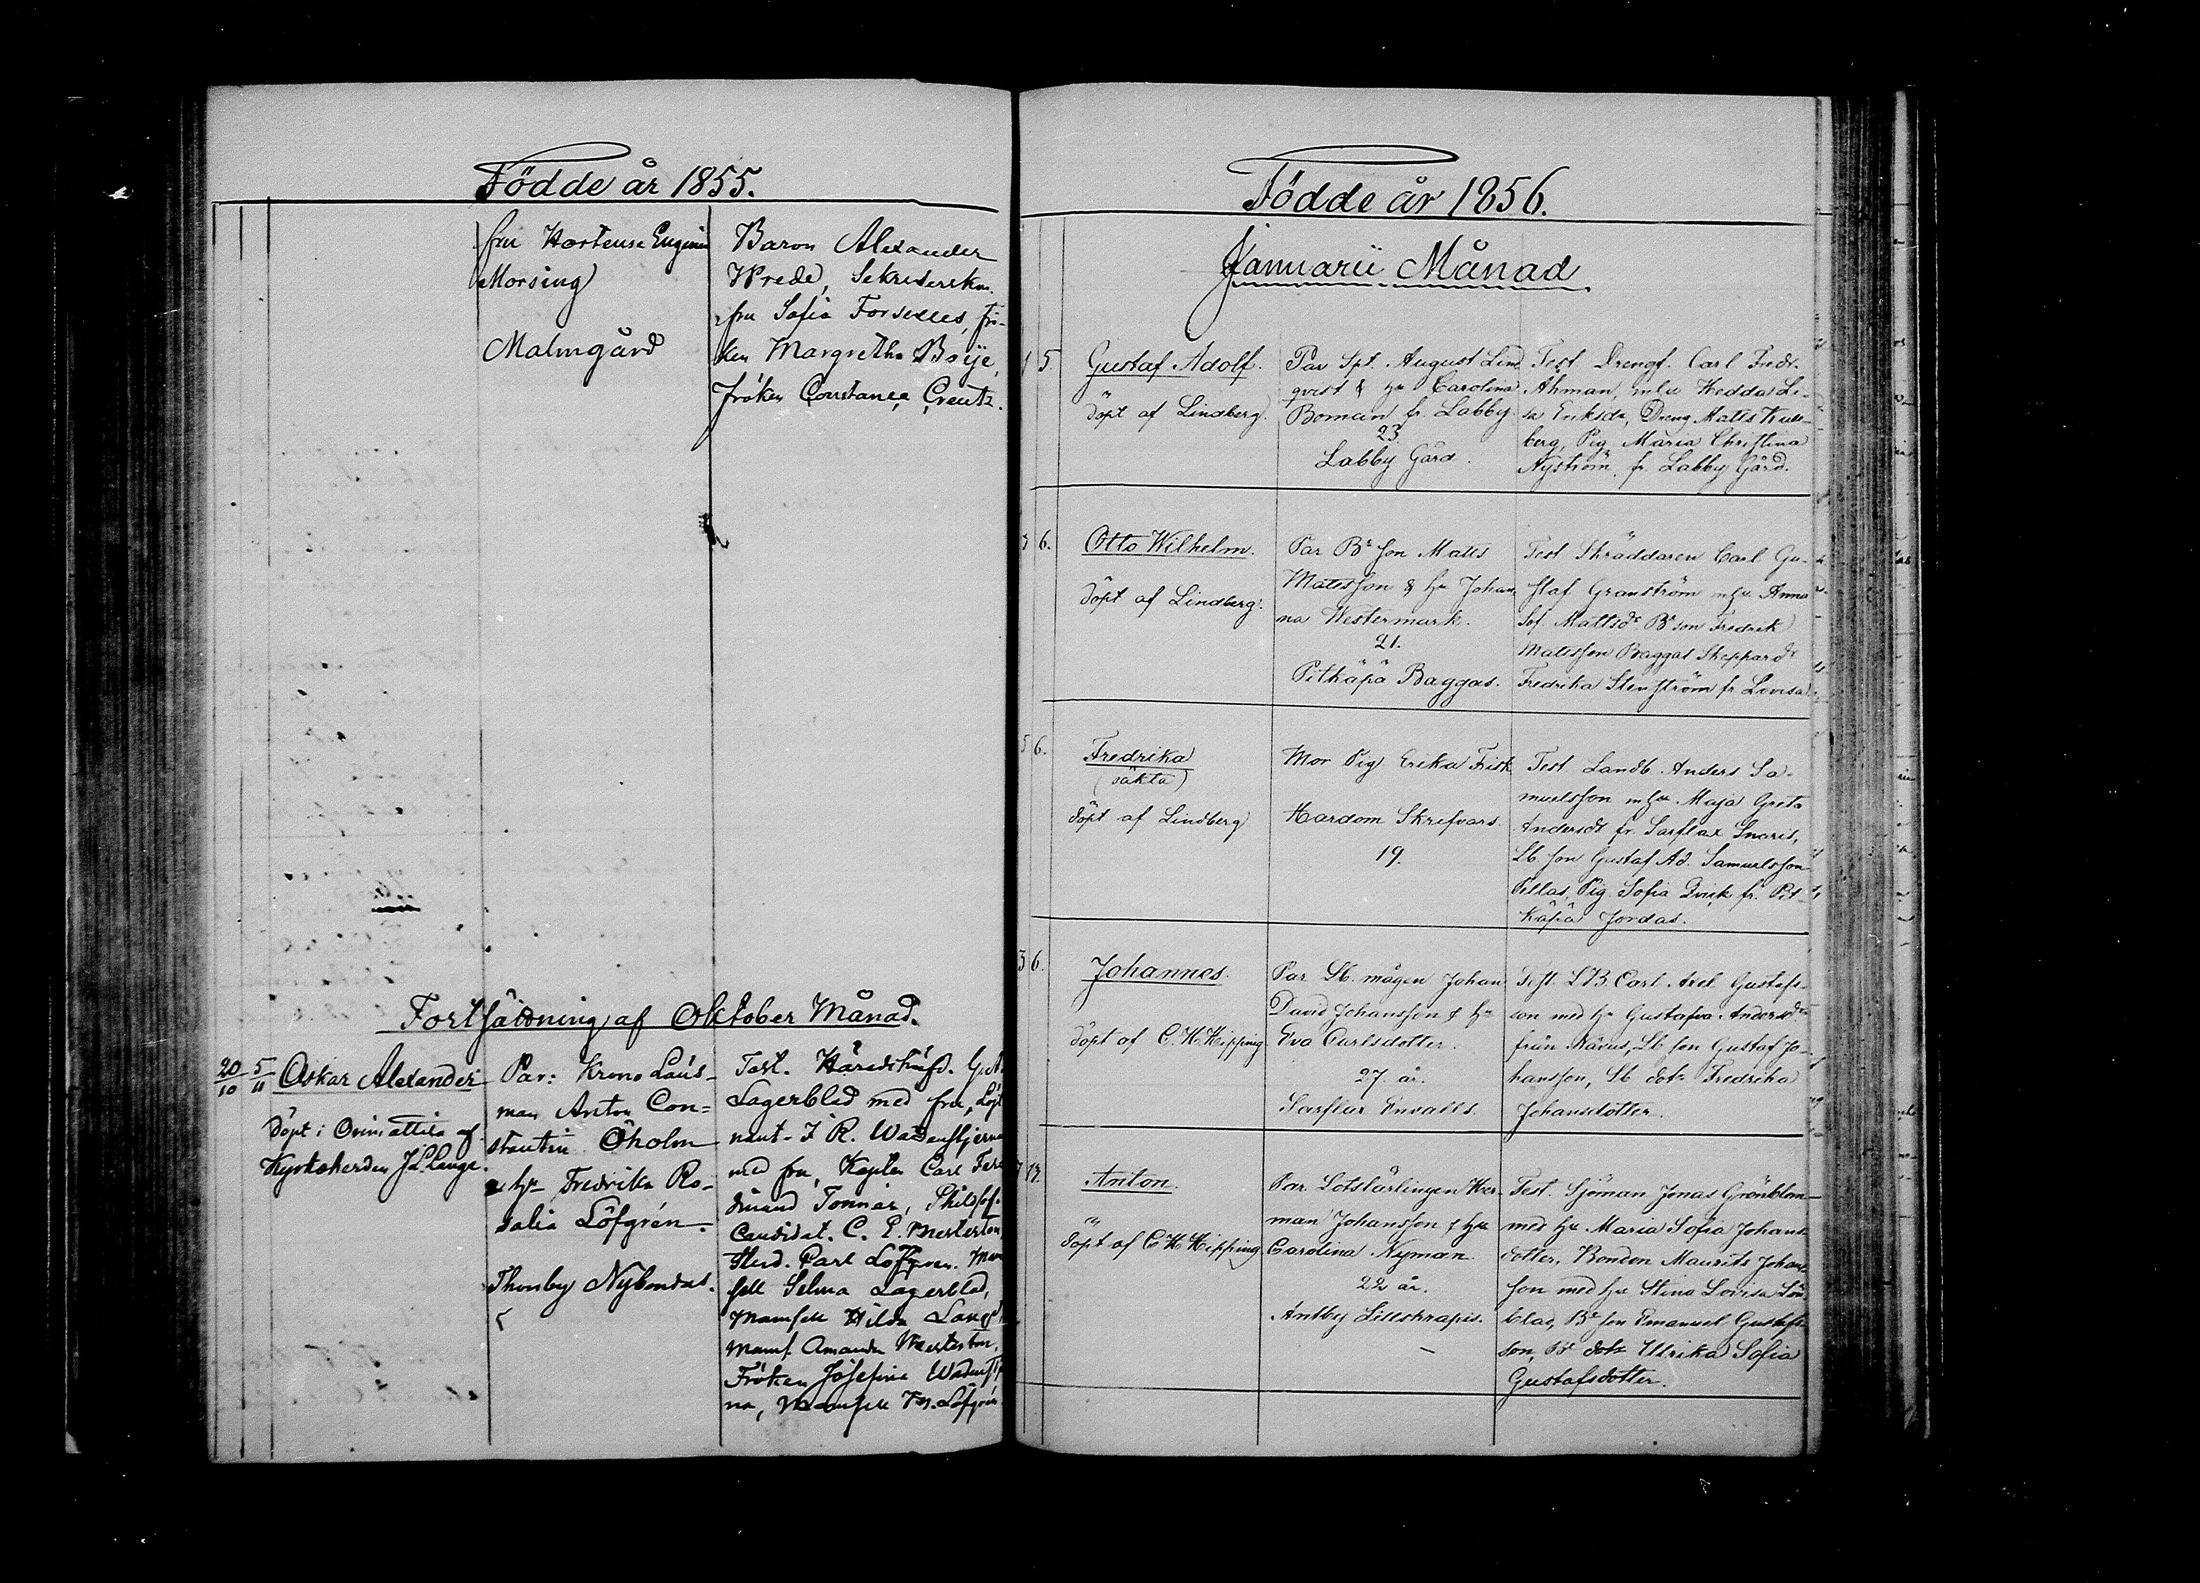 Födde år 1855.
fru Hortense Eugenie
Morsing
Malmgård
Baron Alexander
Wrede, Sekreterskan
fru Sofia Forselles, frö-
ken Margretha Boije,
fröken Constance Creutz.
Fortsättning af Oktober Månad.
20/10 5/11 Oskar Alexander
döpt i Orimattila af
Kyrkoherden J. L. Lange.
Par: Krono Läns-
man Anton Con=
stantin Öholm
& hu Fredrika Ro-
salia Löfgrén.
Thorsby Nybondas.
Test. Häradshöfd. Gust.
Lagerblad med fru, Löjt
nant J R. Wadenstjerna
med fru, Kapten Carl Fer
dinand Tonnér, Philosof.
Candidat. C. E. Mesterton,
Stud. Carl Löfgren. Mam
sell Selma Lagerblad,
Mamsell Hilda Lange
Mams. Amanda Mesterton,
Fröken Josefina Wadenstjer
na, Mamsell M. Löfgrén
Födde år 1856.
Januarii Månad
1 5. Gustaf Adolf.
döpt af Lindberg.
Par Spt. August Lind
qvist & hu Carolina
Boman fr. Labby.
23.
Labby Gård.
Test Drengf. Carl Fredr.
Åhman, m hu Hedda Li-
sa Eriksdr, Dreng Matts Kull-
berg, Pig. Maria Christina
Nyström, fr. Labby Gård.
3 6. Otto Wilhelm.
döpt af Lindberg.
Par Be son Matts
Matsson & hu Johan
na Westermark.
21.
Pitkäpä Baggas.
Test Skräddaren Carl Gu-
staf Granström m hu Anna
Sof. Mattsdr Be son Fredrik
Matsson Baggas Skeppardr
Fredrika Stenström fr Lovisa.
5 6. Fredrika
(oäkta)
döpt af Lindberg
Mor Pig. Erika Frisk
Hardom Skrefvars.
19.
Test Landb. Anders Sa-
muelsson m hu Maja Greta
Andersdr fr. Sarflax Snaris,
Lb son Gustaf Ad. Samuelsson
Pellas, Pig Sofia Qvick fr. Pit-
käpä Jordas.
3 6. Johannes.
döpt af C H Hipping
Par Lb. mågen Johan
David Johansson & hu
Eva Carlsdotter.
27 år.
Sarflax Envalls.
Test. L B. Carl Axel Gustafs-
son med hu Gustafva Andersdr
från Nävus, Lb son Gustaf Jo-
hansson, Lb dotr Fredrika
Johansdotter.
7 13. Anton.
döpt af C H Hipping
Par Lotslärlingen Her
man Johansson & hu
Carolina Nyman
22 år.
Antby Lillskrapis.
Test. Sjöman Jonas Grönblom
med hu Maria Sofia Johans
dotter, Bonden Maurits Johans
son med hu Stina Lovisa Lön
blad, Be son Emanuel Gustafs
son, Be dotr Ulrika Sofia
Gustafsdotter.